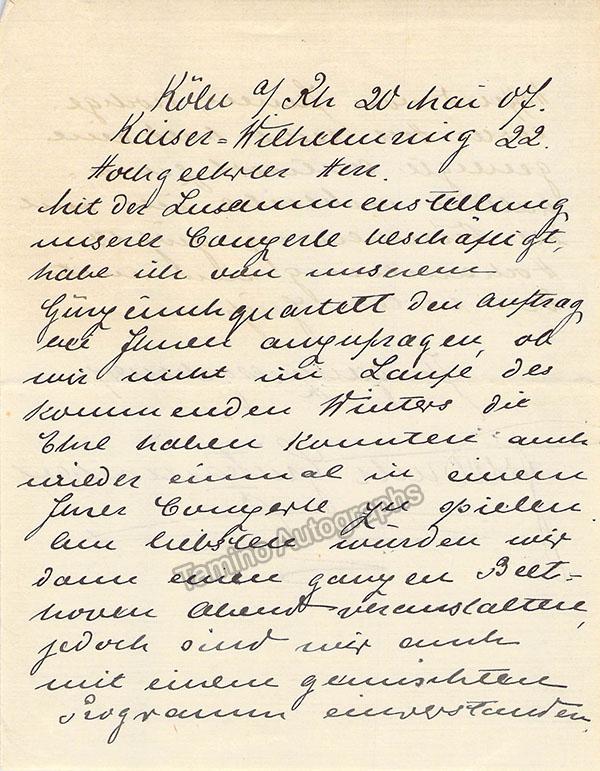 Köln a/Rh 20 Mai 07.
Kaiser=Wilhelmring 22.
Hochgeehrter Herr.
Mit der Zusammenstellung
unserer Conzerte beschäftigt,
habe ich von unserem
Gürzenichquartett den Auftrag
bei Ihnen anzufragen, ob
wir nicht im Laufe des
kommenden Winters die
Ehre haben könnten auch
wieder einmal in einem
Ihrer Conzerte zu spielen.
Am liebsten würden wir
dann einen ganzen Beet=
hoven Abend veranstalten,
jedoch sind wir auch
mit einem gemischten
Programm einverstanden.
Tamino Autographs